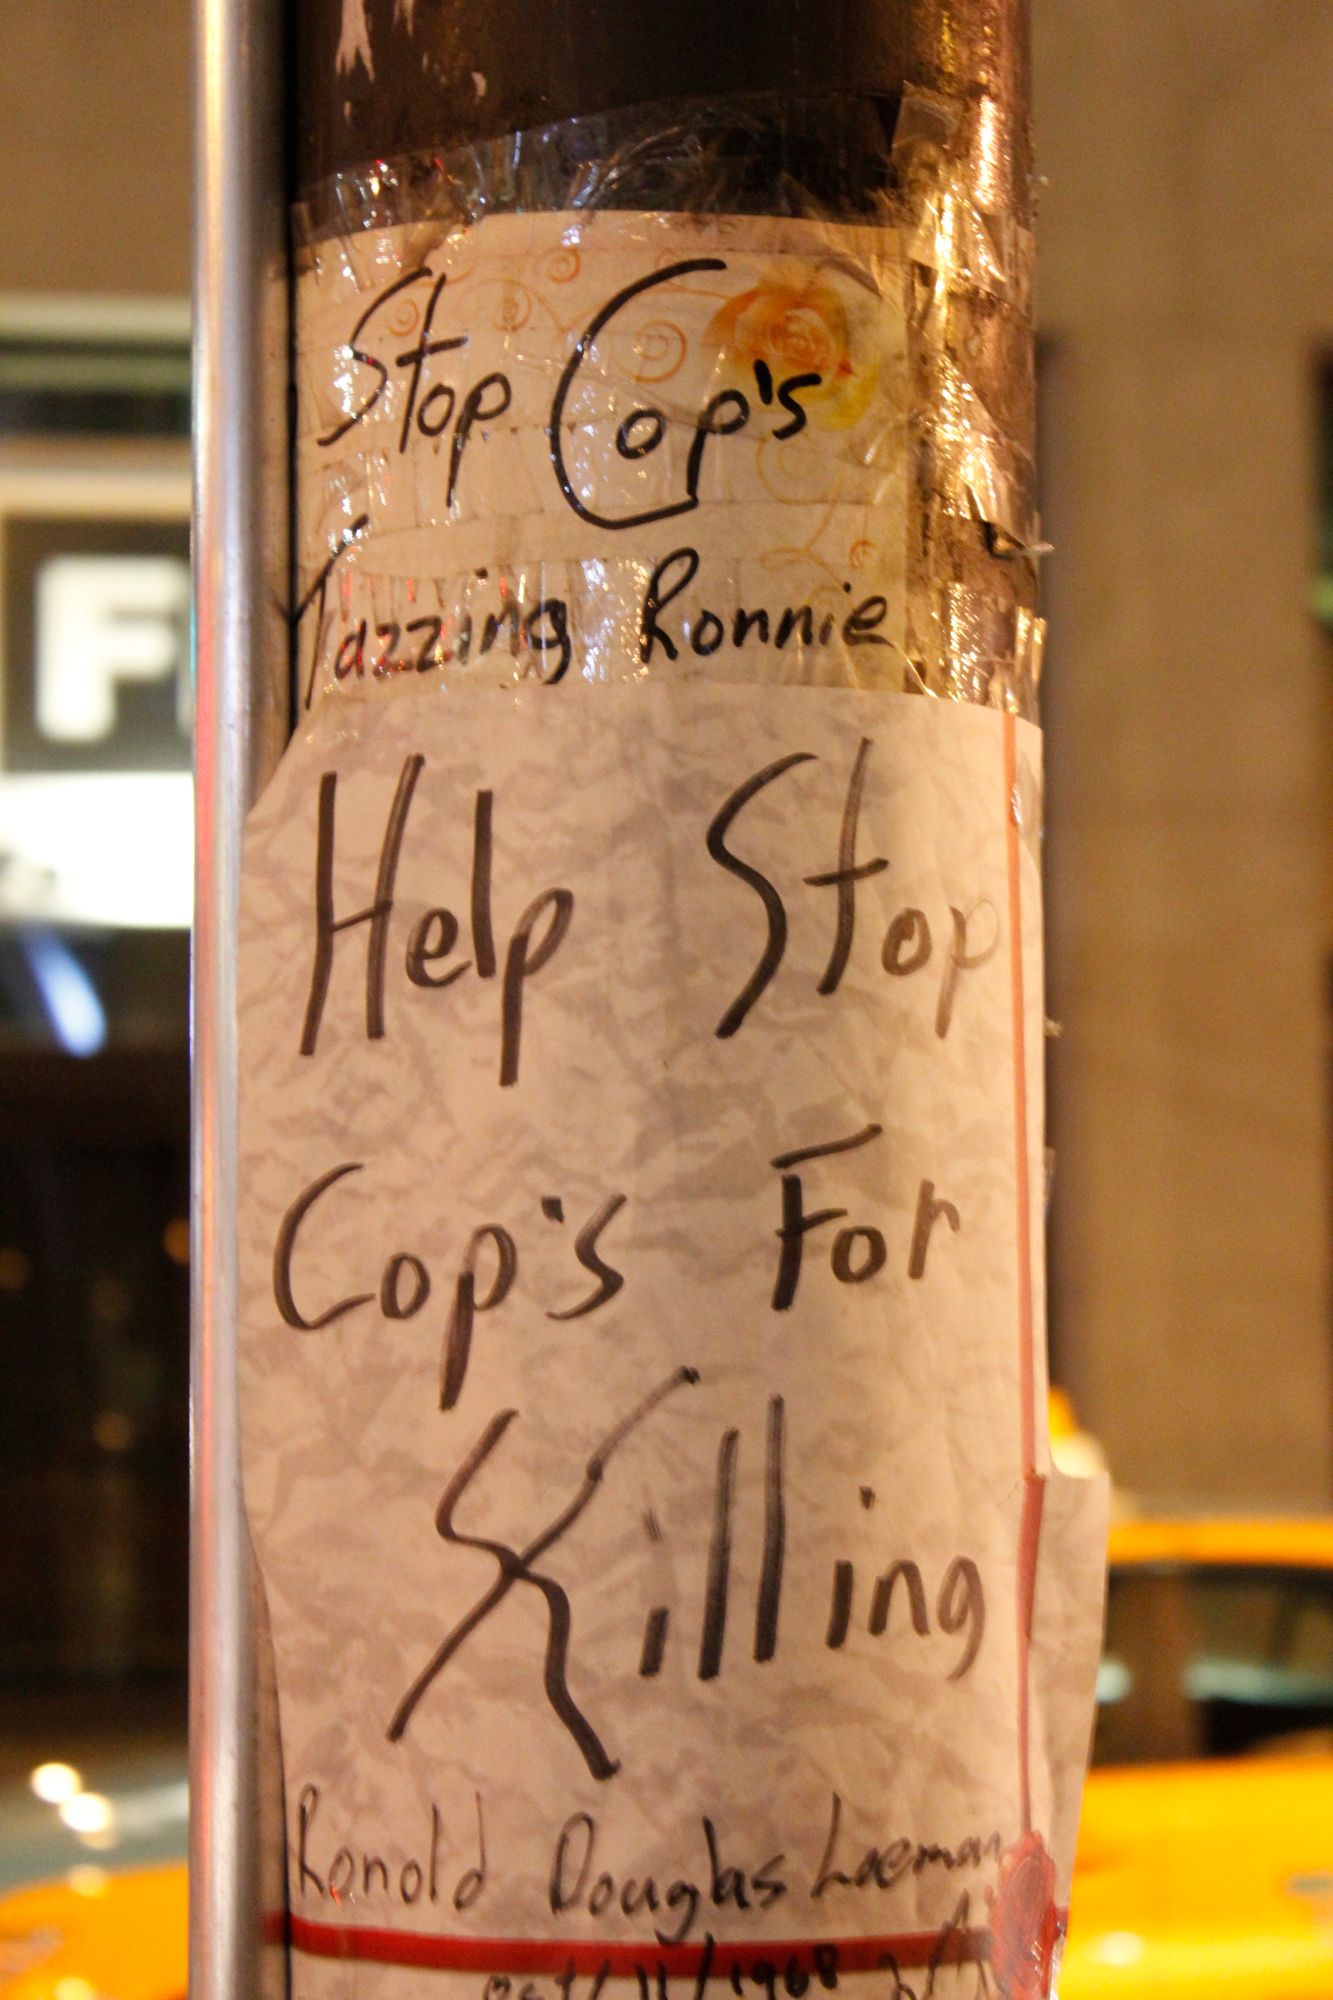 Stop Cop's
Tazzing Ronnie
Help Stop
Cop's For
Killing
Ronold Douglas Loeman
oct/11/1968
F